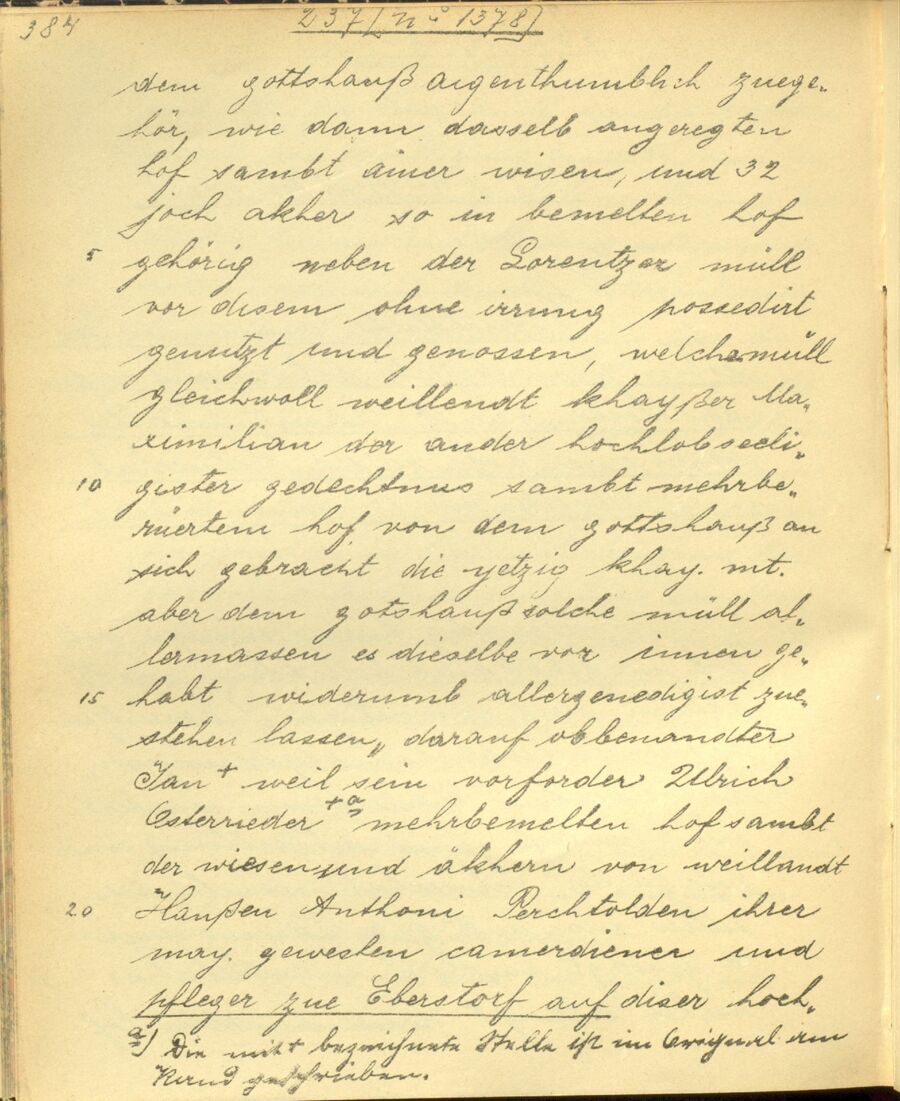 384
237 [nº 1378]
dem gottshauß aigenthumblich zuege„
hör, wie dann dasselb angeregten
hof sambt ainer wisen, und 32
joch akher so in bemelten hof
5 gehörig neben der Lorentzer müll
vor disem ohne irrung possedirt
genutzt und genossen, welche müll
gleichwoll weillendt khayßer Ma„
ximilian der ander hochlobseeli„
10 gister gedechtnus sambt mehrbe„
rüertem hof von dem gottshauß an
sich gebracht die yetzig khay. mt.
aber dem gotshauß solche müll al„
lermassen es dieselbe vor innen ge„
15 habt widerumb allergenedigist zue„
stehen lassen„ darauf obbenandter
Jan + weil sein vorforder Ulrich
Osterrieder + a) mehrbemelten hof sambt
der wiesen und äkhern von weillandt
20 Hanßen Anthoni Perchtolden ihrer
may. gewesten camerdiener und
pfleger zue Eberstorf auf diser hoch„
a) Die mit + bezeichnete Stelle ist im Original am
Rand geschrieben.